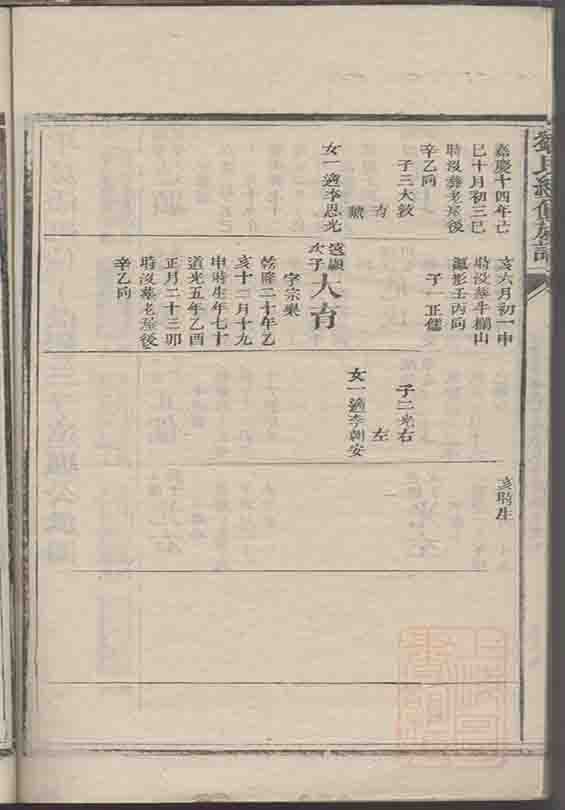 氏續修族譜
嘉慶十四年己
巳十月初三巳
時沒葬老屋後
辛乙向
子三大敘
育
獻
女一適李恩光
亥六月初一申
時沒葬牛欄山
形壬丙向
子一正儒
遠顯
次子
大育
字宗樂
乾隆二十年乙
亥十二月十九
申時生年七十
道光五年乙酉
正月二十三卯
時沒墓老屋後
辛乙向
子二光右
左
女一適李朝安
亥時生